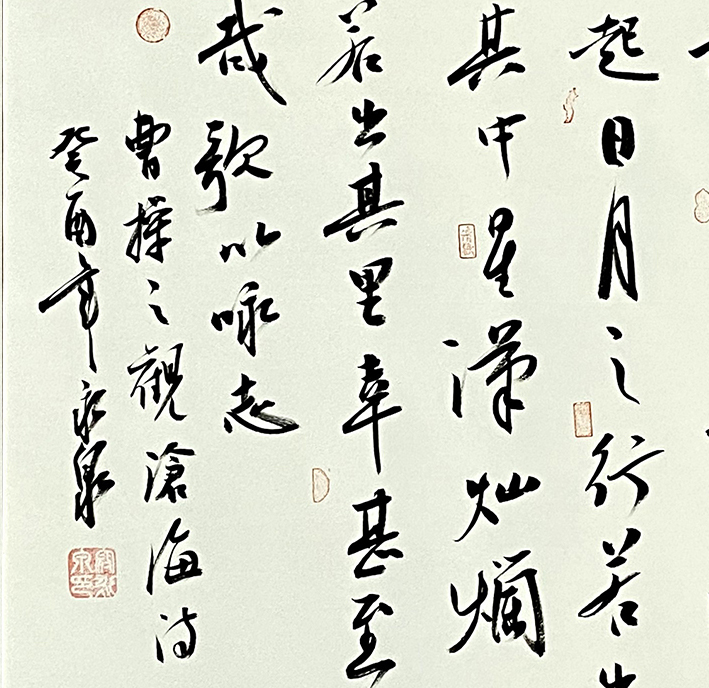 起日月之行若出
其中星漢灿爛
若出其里幸甚至
哉歌以咏志
曹操之觀滄海诗
癸酉年永泉